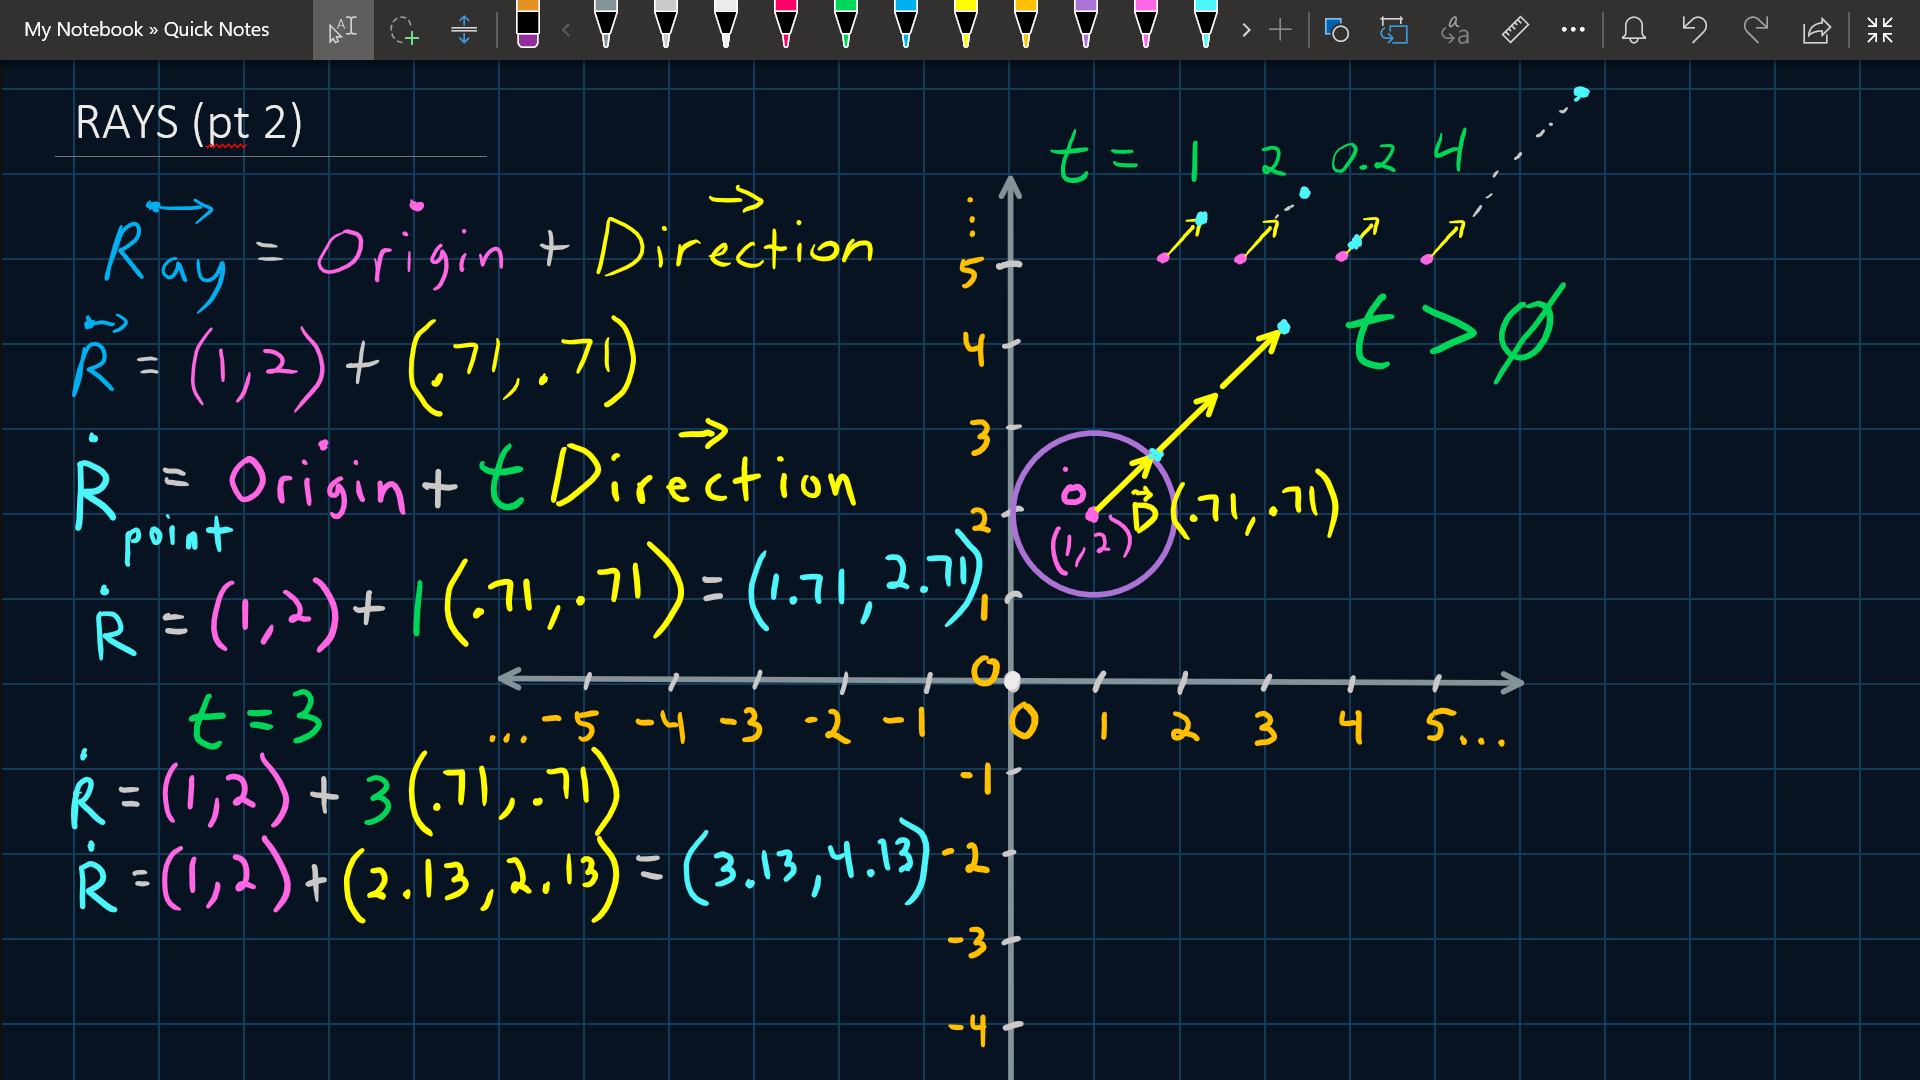 My Notebook » Quick Notes
RAYS (pt 2)
Ray = Origin + Direction
R = (1, 2) + (.71, .71)
R = Origin + t Direction
point
R = (1, 2) + 1 (.71, .71) = (1.71, 2.71)
t = 3
R = (1, 2) + 3 (.71, .71)
R = (1, 2) + (2.13, 2.13) = (3.13, 4.13)
t = 1 2 0.2 4
t > 0
O
(1, 2)
D (.71, .71)
⋮
5
4
3
2
1
0
... -5 -4 -3 -2 -1 0 1 2 3 4 5 ...
-1
-2
-3
-4